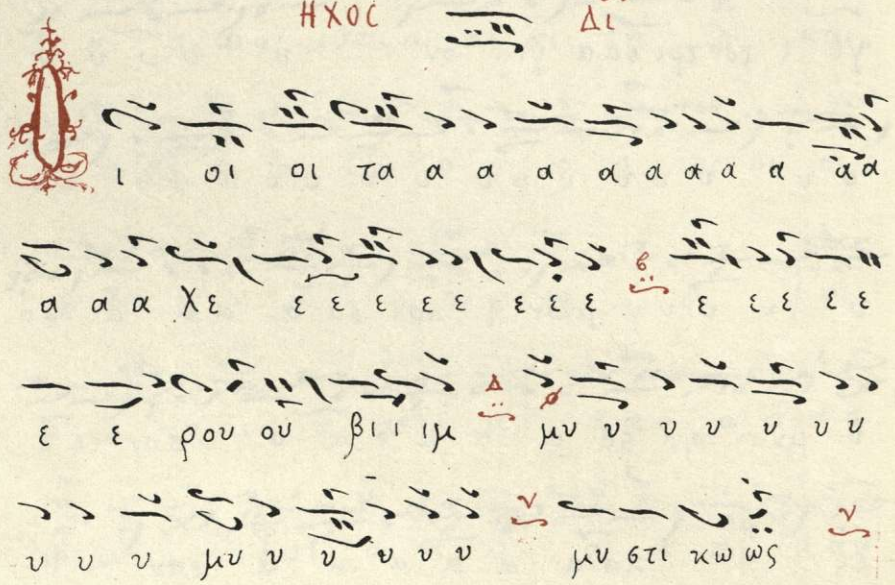 ΗΧΟC Δι
Οι οι οι τα α α α α α α α α α α
α α α χε ε ε ε ε ε ε ε ε β ε ε ε ε ε
ε ε ρου ου βι ι ιμ Δ μυ υ υ υ υ υ υ
υ υ υ μυ υ υ υ υ υ ν μυ στι κω ως ν